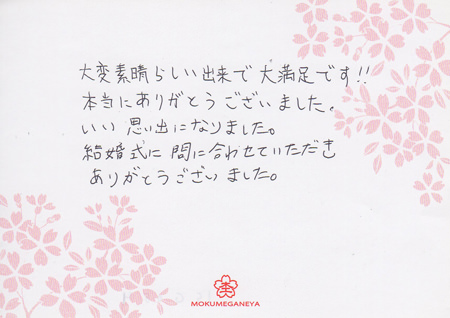 大変素晴らしい出来で大満足です!!
本当にありがとうございました。
いい思い出になりました。
結婚式に間に合わせていただき
ありがとうございました。
MOKUMEGANEYA